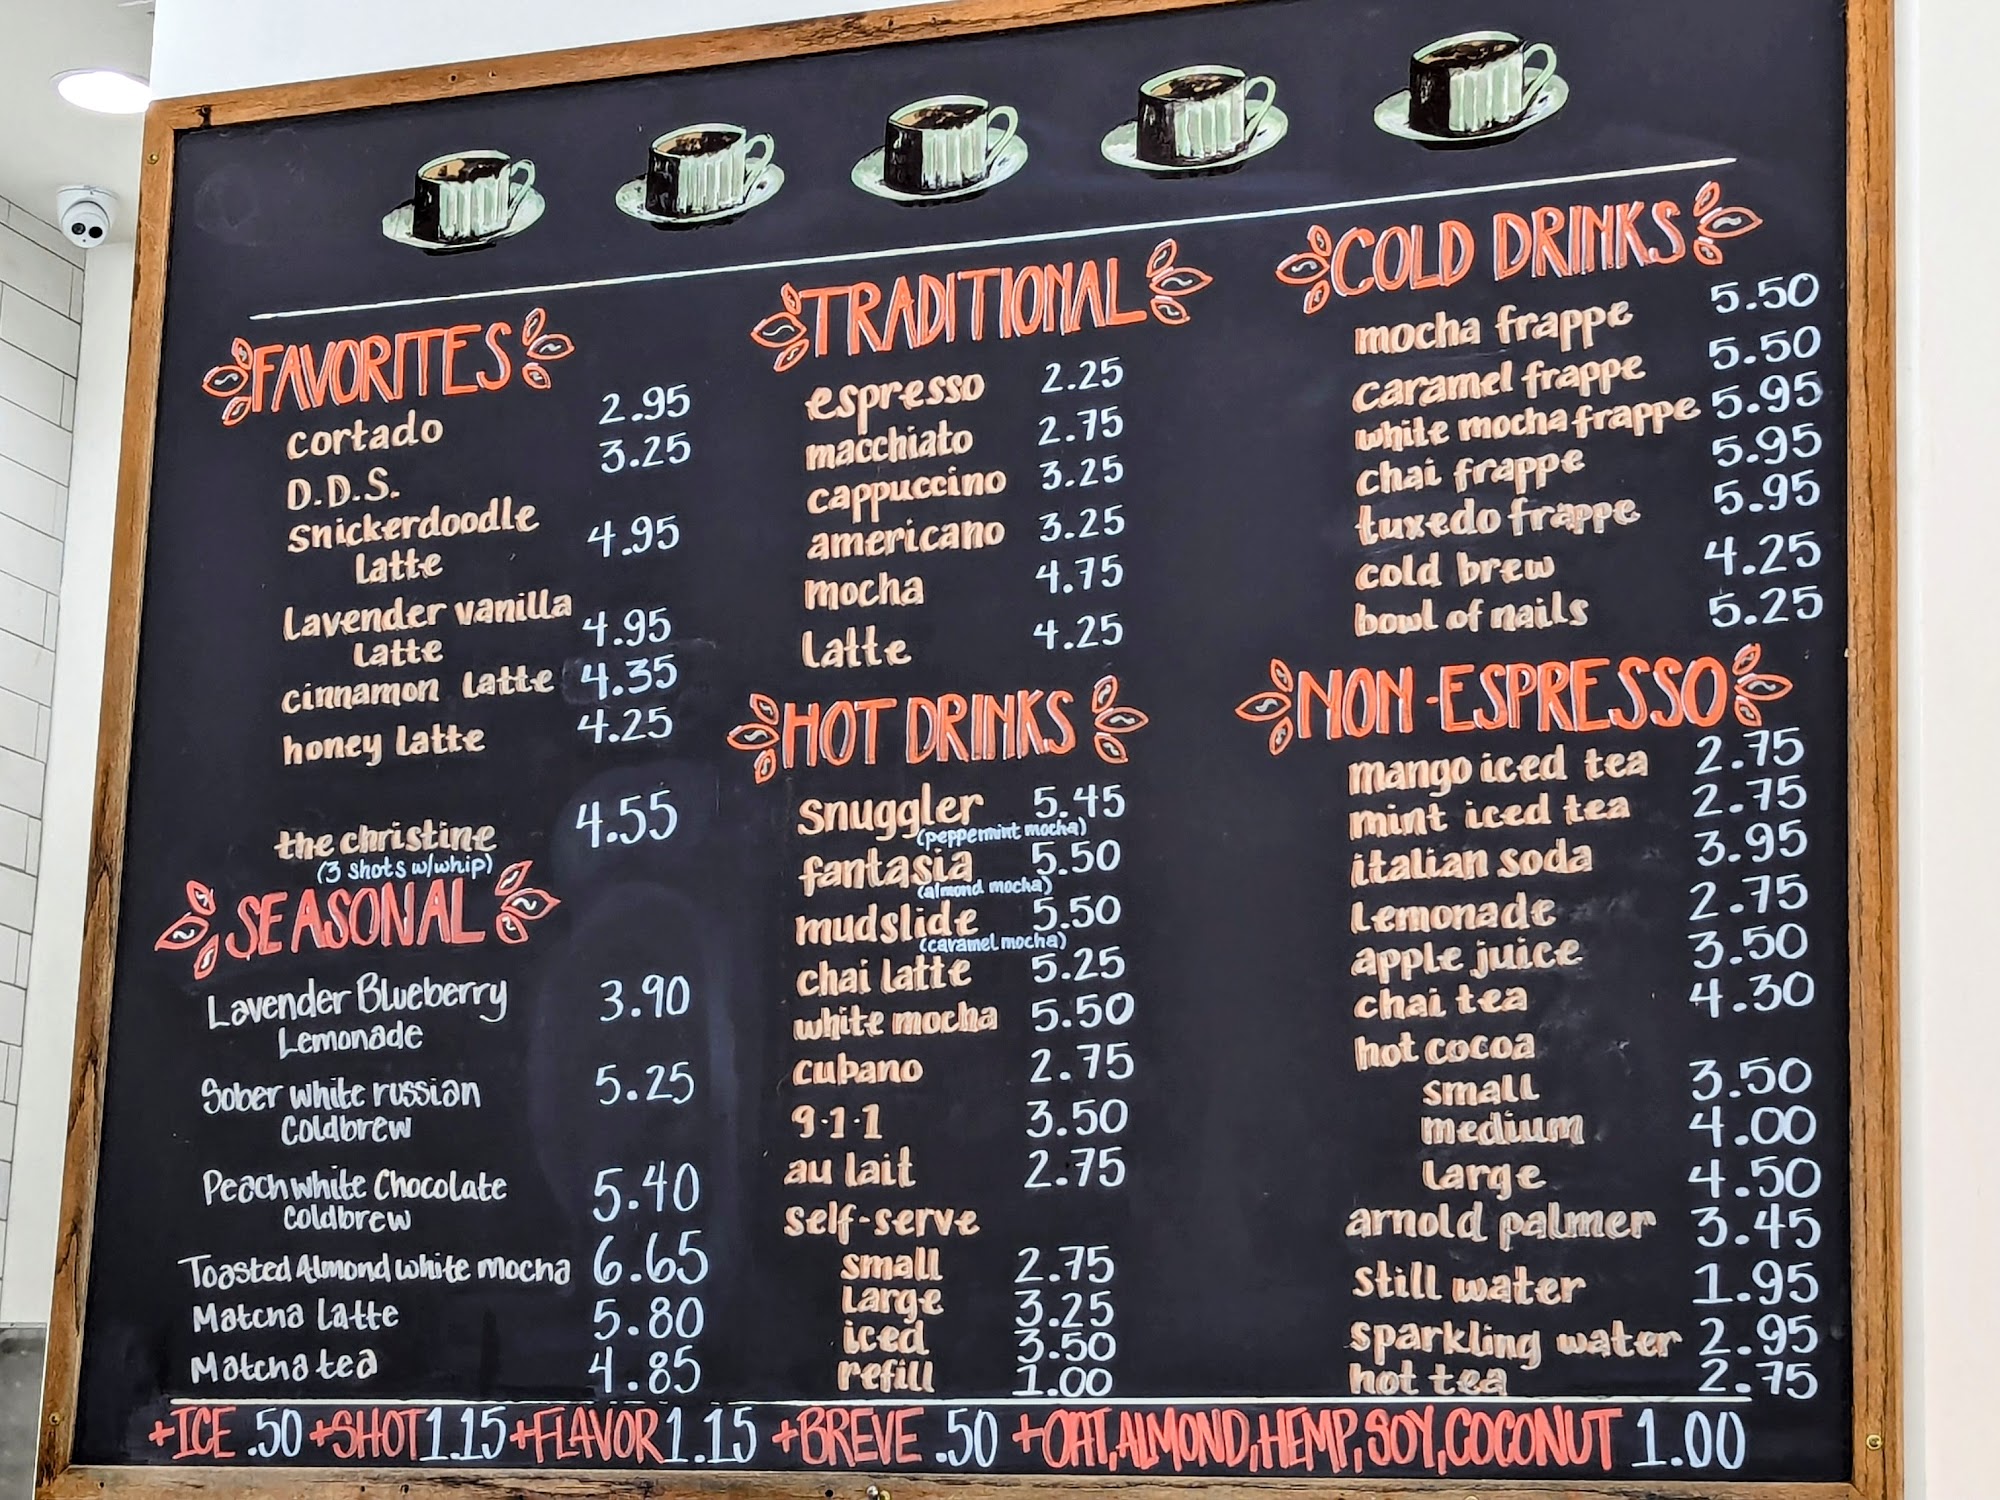 FAVORITES
cortado 2.95
D.D.S. 3.25
snickerdoodle
latte 4.95
lavender vanilla
latte 4.95
cinnamon latte 4.35
honey latte 4.25
the christine 4.55
(3 shots w/whip)
SEASONAL
Lavender Blueberry 3.90
Lemonade
Sober white russian 5.25
Coldbrew
Peach white Chocolate 5.40
Coldbrew
Toasted Almond white mocha 6.65
Matcha Latte 5.80
Matcha tea 4.85
TRADITIONAL
espresso 2.25
macchiato 2.75
cappuccino 3.25
americano 3.25
mocha 4.75
latte 4.25
HOT DRINKS
snuggler 5.45
(peppermint mocha)
fantasia 5.50
(almond mocha)
mudslide 5.50
(caramel mocha)
chai latte 5.25
white mocha 5.50
cubano 2.75
9-1-1 3.50
au lait 2.75
self-serve
small 2.75
large 3.25
iced 3.50
refill 1.00
COLD DRINKS
mocha frappe 5.50
caramel frappe 5.50
white mocha frappe 5.95
chai frappe 5.95
tuxedo frappe 5.95
cold brew 4.25
bowl of nails 5.25
NON-ESPRESSO
mango iced tea 2.75
mint iced tea 2.75
italian soda 3.95
lemonade 2.75
apple juice 3.50
chai tea 4.30
hot cocoa
small 3.50
medium 4.00
large 4.50
arnold palmer 3.45
still water 1.95
sparkling water 2.95
hot tea 2.75
+ICE .50 +SHOT 1.15 +FLAVOR 1.15 +BREVE .50 +OAT, ALMOND, HEMP, SOY, COCONUT 1.00